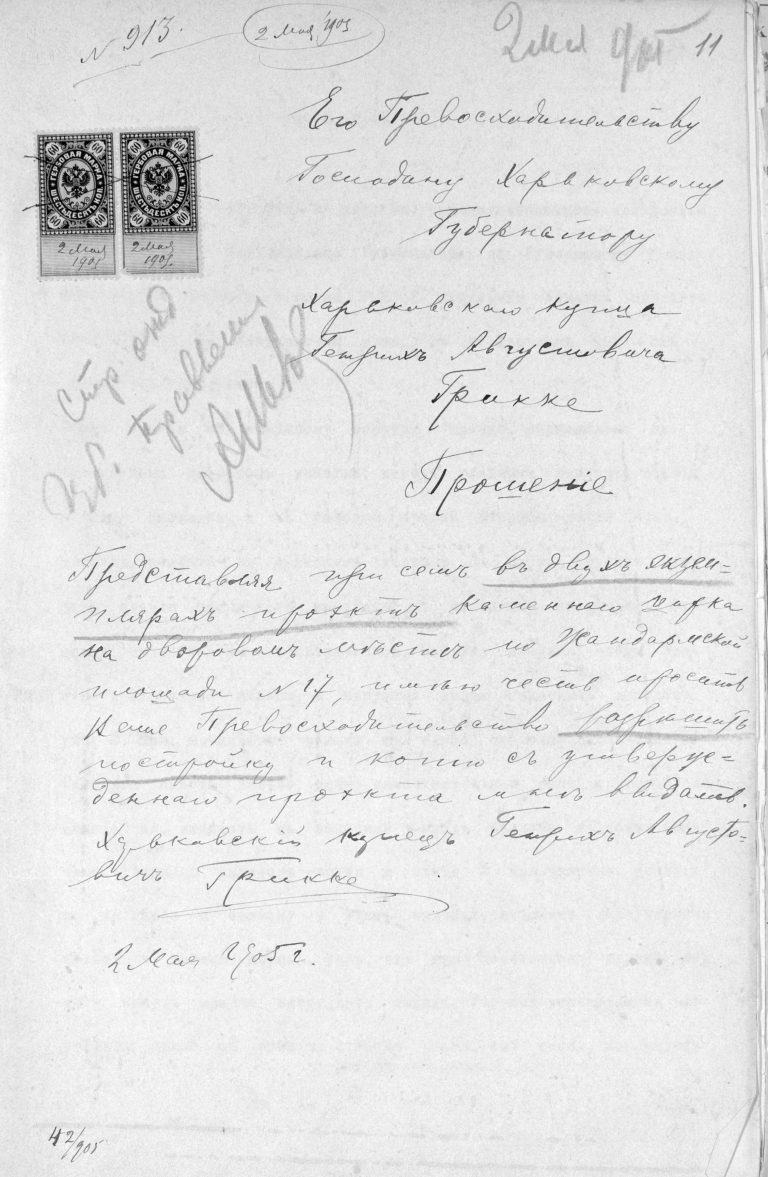 N 913.
2 Мая 1905
2 мая 905
11
Его Превосходительству
Господину Харьковскому
Губернатору
60 ГЕРБОВАЯ МАРКА 60
60 ШЕСТЬДЕСЯТЪ КОП. 60
2 Мая
1905
60 ГЕРБОВАЯ МАРКА 60
60 ШЕСТЬДЕСЯТЪ КОП. 60
2 Мая
1905.
Стр отд
Губ. Правленія
Харьковскаго купца
Генрихъ Августовича
Грикке
Прошеніе
Представляя при семъ въ двухъ экзем-
плярахъ проэктъ каменнаго цирка
на дворовомъ мѣстѣ по Жандармской
площади N 17, имѣю честь просить
Ваше Превосходительство разрѣшить
постройку и копію съ утверж-
деннаго проэкта мнѣ выдать.
Харьковскій купецъ Генрихъ Августо-
вичъ Грикке
2 Мая 1905 г.
42/905